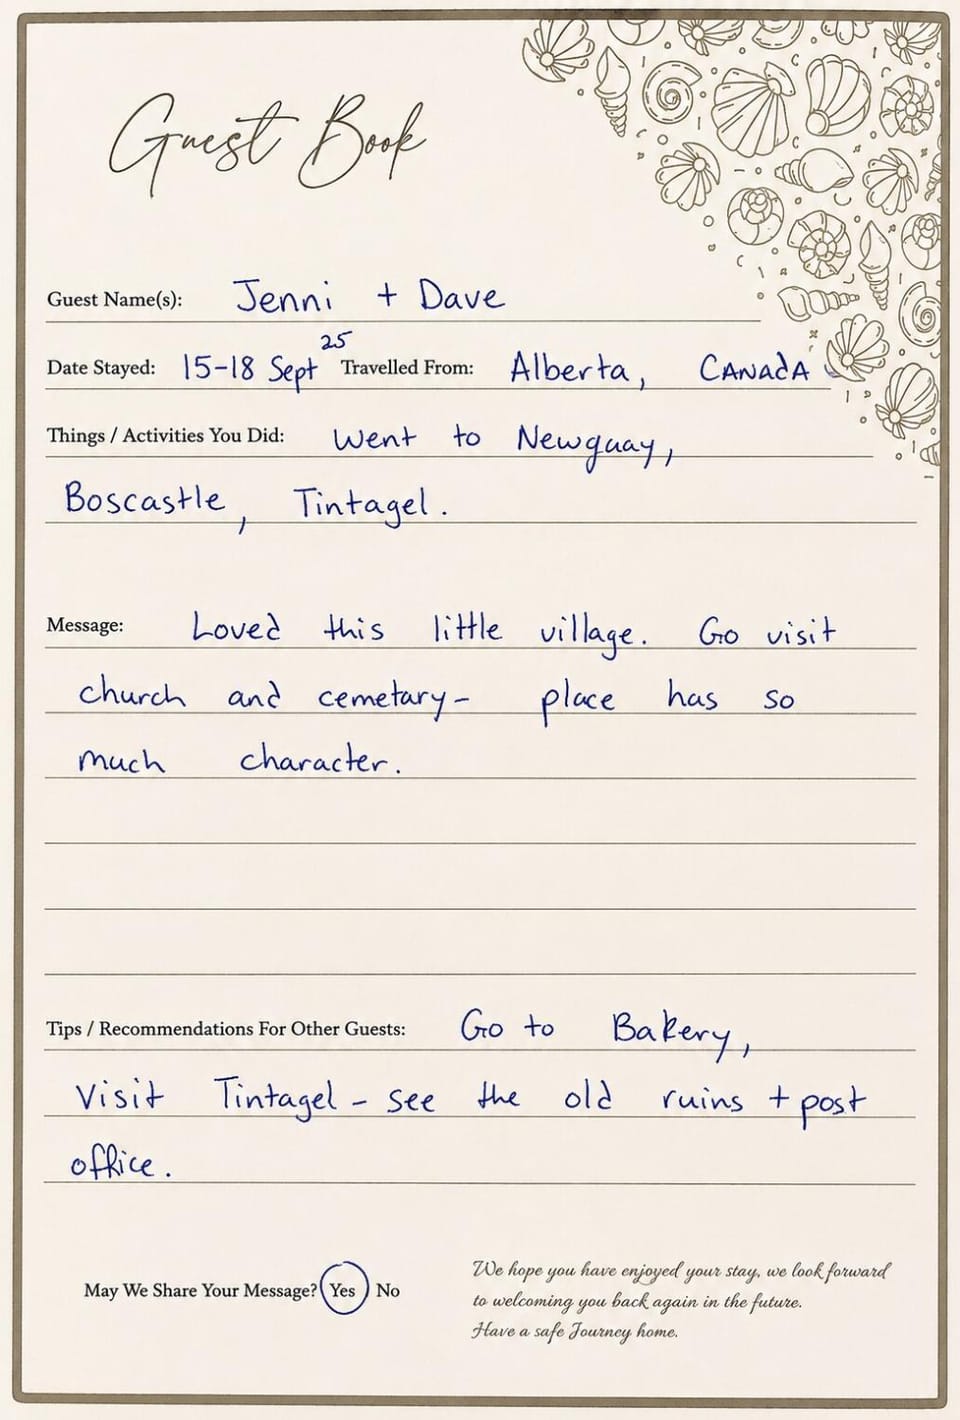 Guest Book
Guest Name(s): Jenni + Dave
Date Stayed: 15-18 Sept 25 Travelled From: Alberta, CANADA
Things / Activities You Did: Went to Newquay,
Boscastle, Tintagel.
Message: Loved this little village. Go visit
church and cemetary- place has so
much character.
Tips / Recommendations For Other Guests: Go to Bakery,
Visit Tintagel - see the old ruins + post
office.
May We Share Your Message? Yes No
We hope you have enjoyed your stay, we look forward
to welcoming you back again in the future.
Have a safe Journey home.